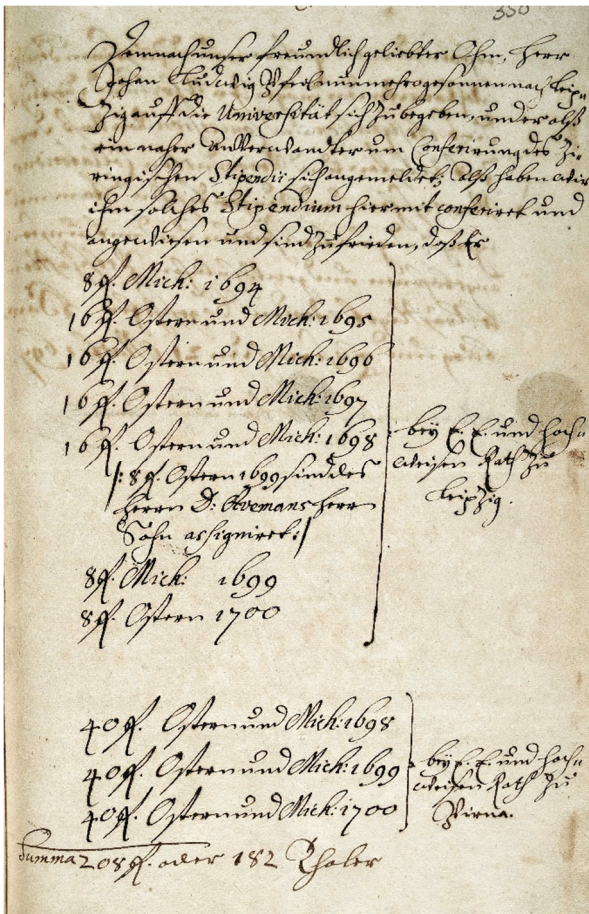 330
Demnach unser freundlich geliebter Ohm, Herr
Johan Ludwig nunmehro gesonnen nach Leip-
zig auff die Universität sich zu begeben, und er alß
ein naher Anverwandter um Conferirung des Zi-
ringischen Stipendii sich angemeldet, alß haben wir
ihm solches Stipendium hiermit conferiret und
angewiesen und sind zufrieden, daß Er
8 fl. Mich: 1694
16 fl. Ostern und Mich: 1695
16 fl. Ostern und Mich: 1696
16 fl. Ostern und Mich: 1697
16 fl. Ostern und Mich: 1698
/: 8 fl. Ostern 1699 sind des
Herrn D: Herrn
Sohn assigniret :/
8 fl. Mich: 1699
8 fl. Ostern 1700
bey E. E. und Hoch-
weisen Rath zu
Leipzig.
40 fl. Ostern und Mich: 1698
40 fl. Ostern und Mich: 1699
40 fl. Ostern und Mich: 1700
bey E. E. und Hoch-
weisen Rath zu
Pirna.
Summa 208 fl. oder 182 Thaler